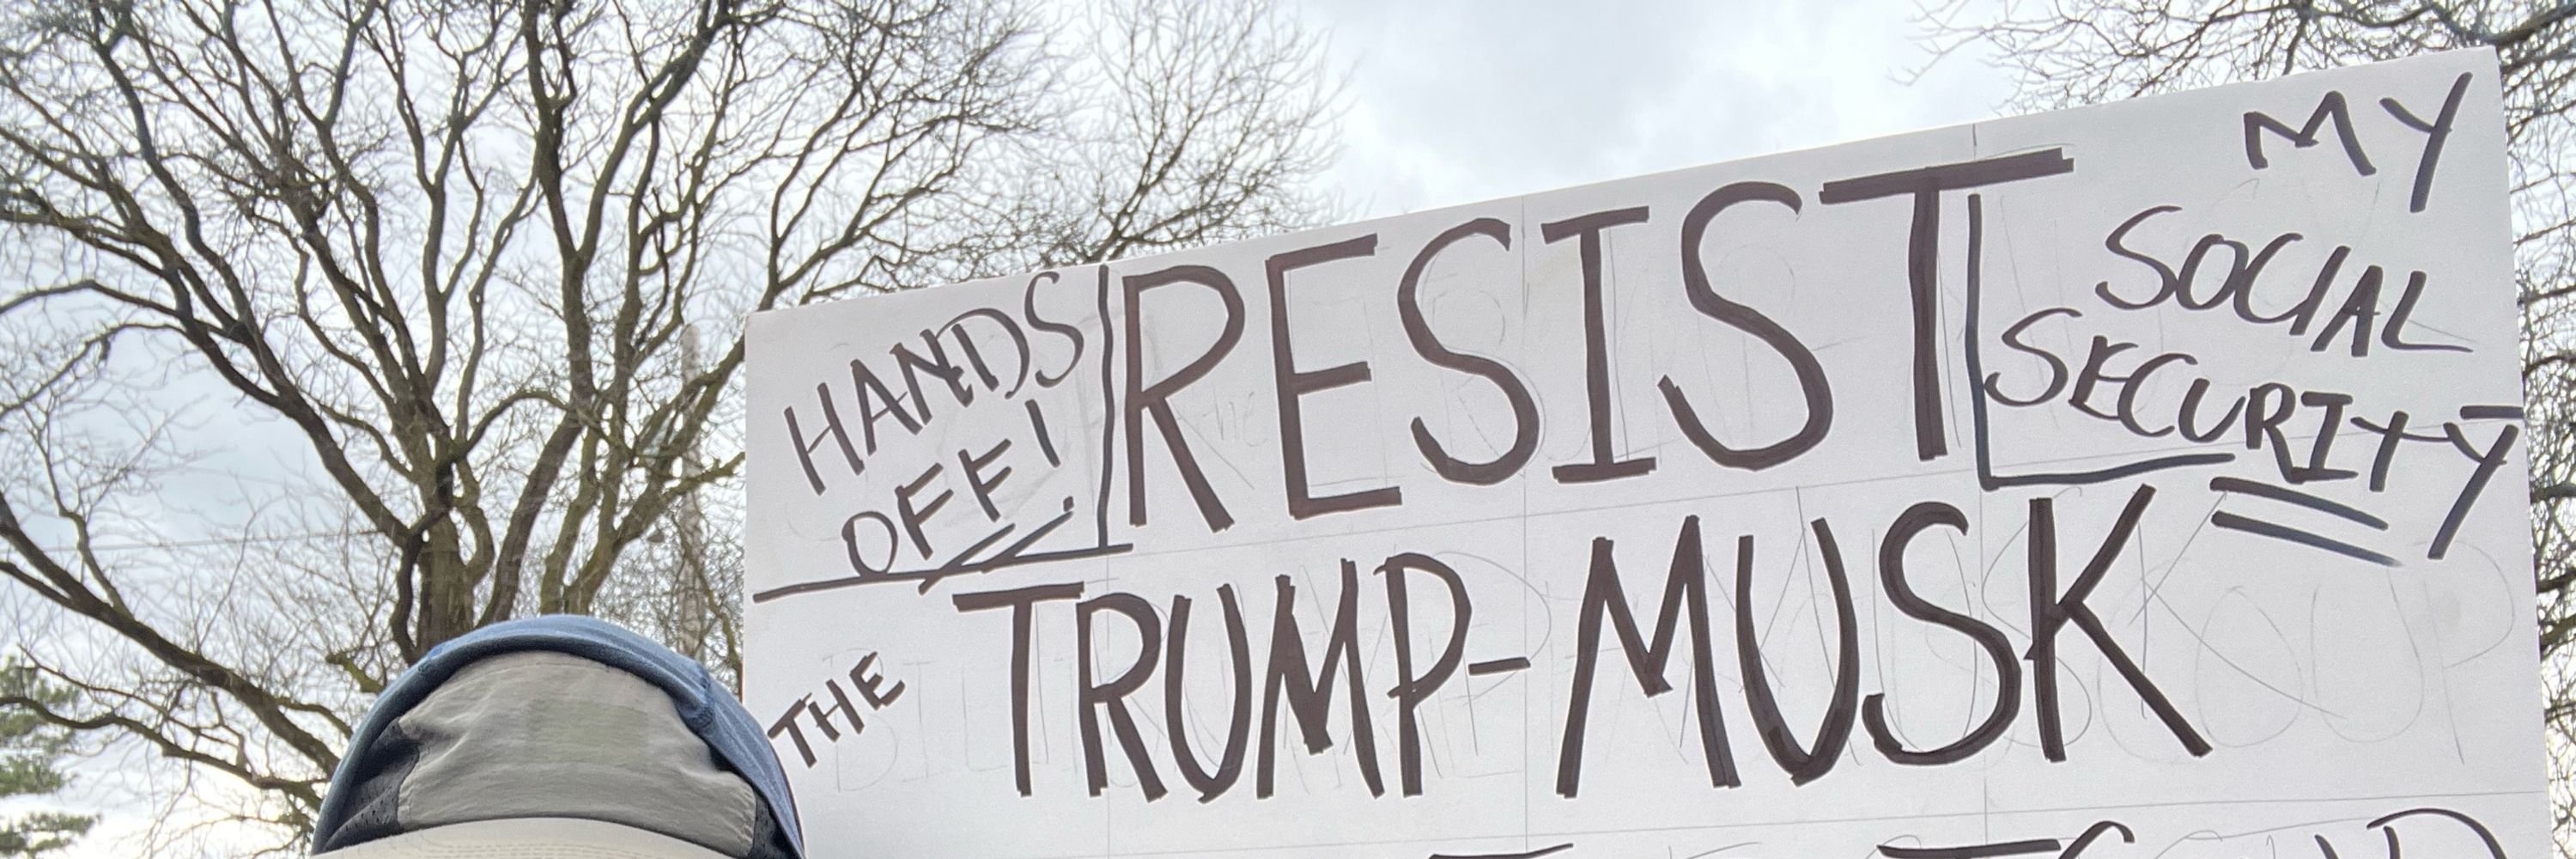 HANDS
OFF!
RESIST
MY
SOCIAL
SECURITY
THE TRUMP-MUSK